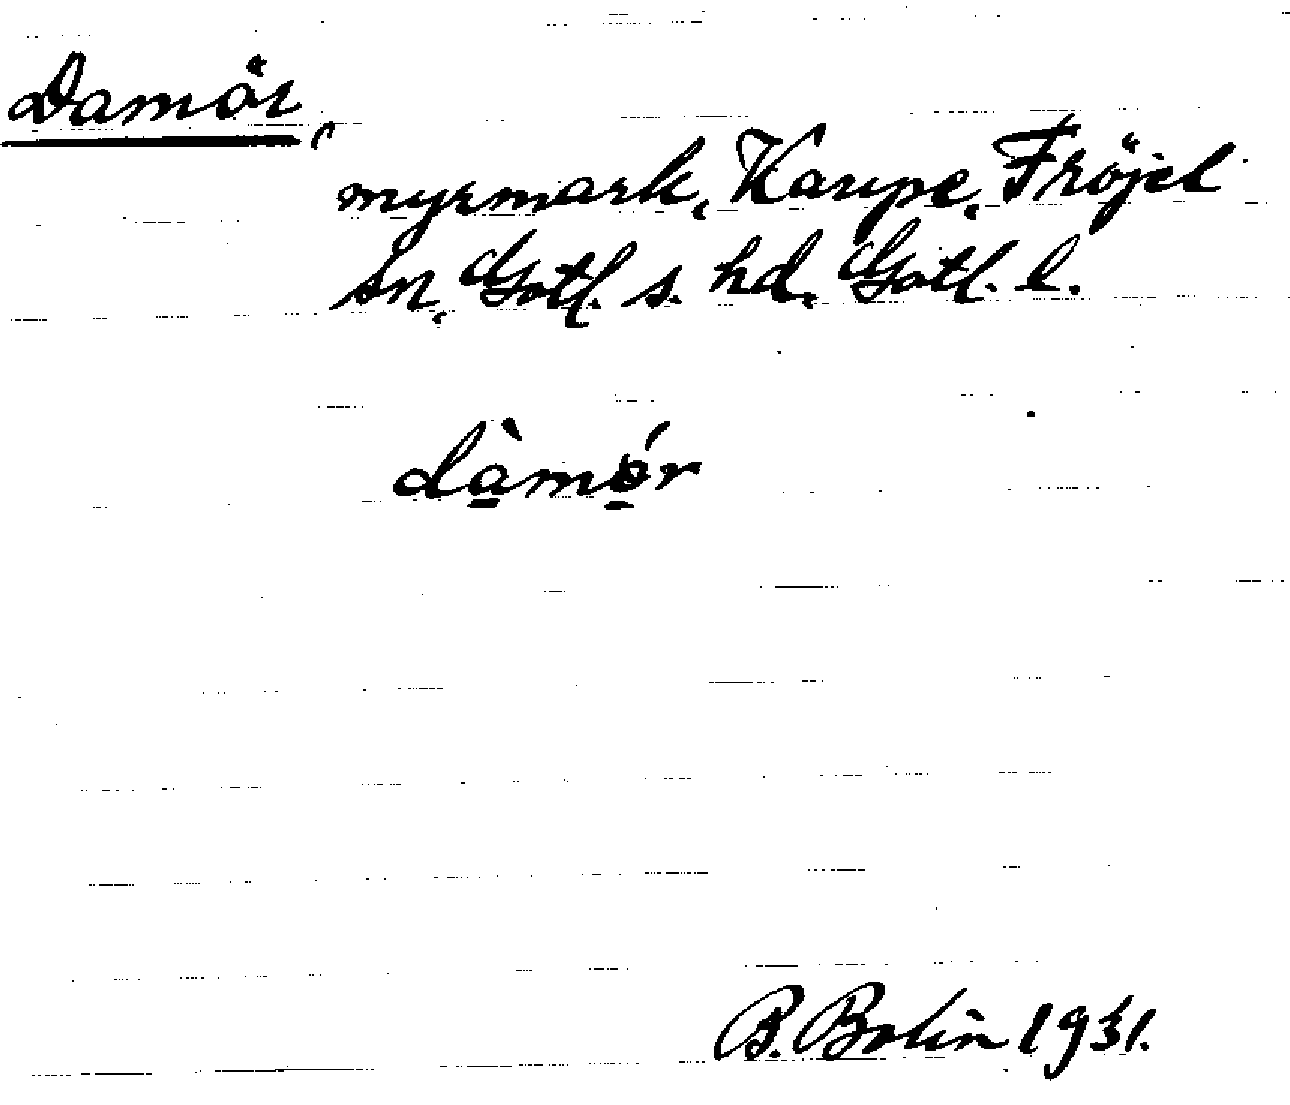 Damör,
myrmark, Kaupe, Fröjel
sn, Gotl. s. hd, Gotl. l.
dà̱mö̱́r
B. Bolin 1931.